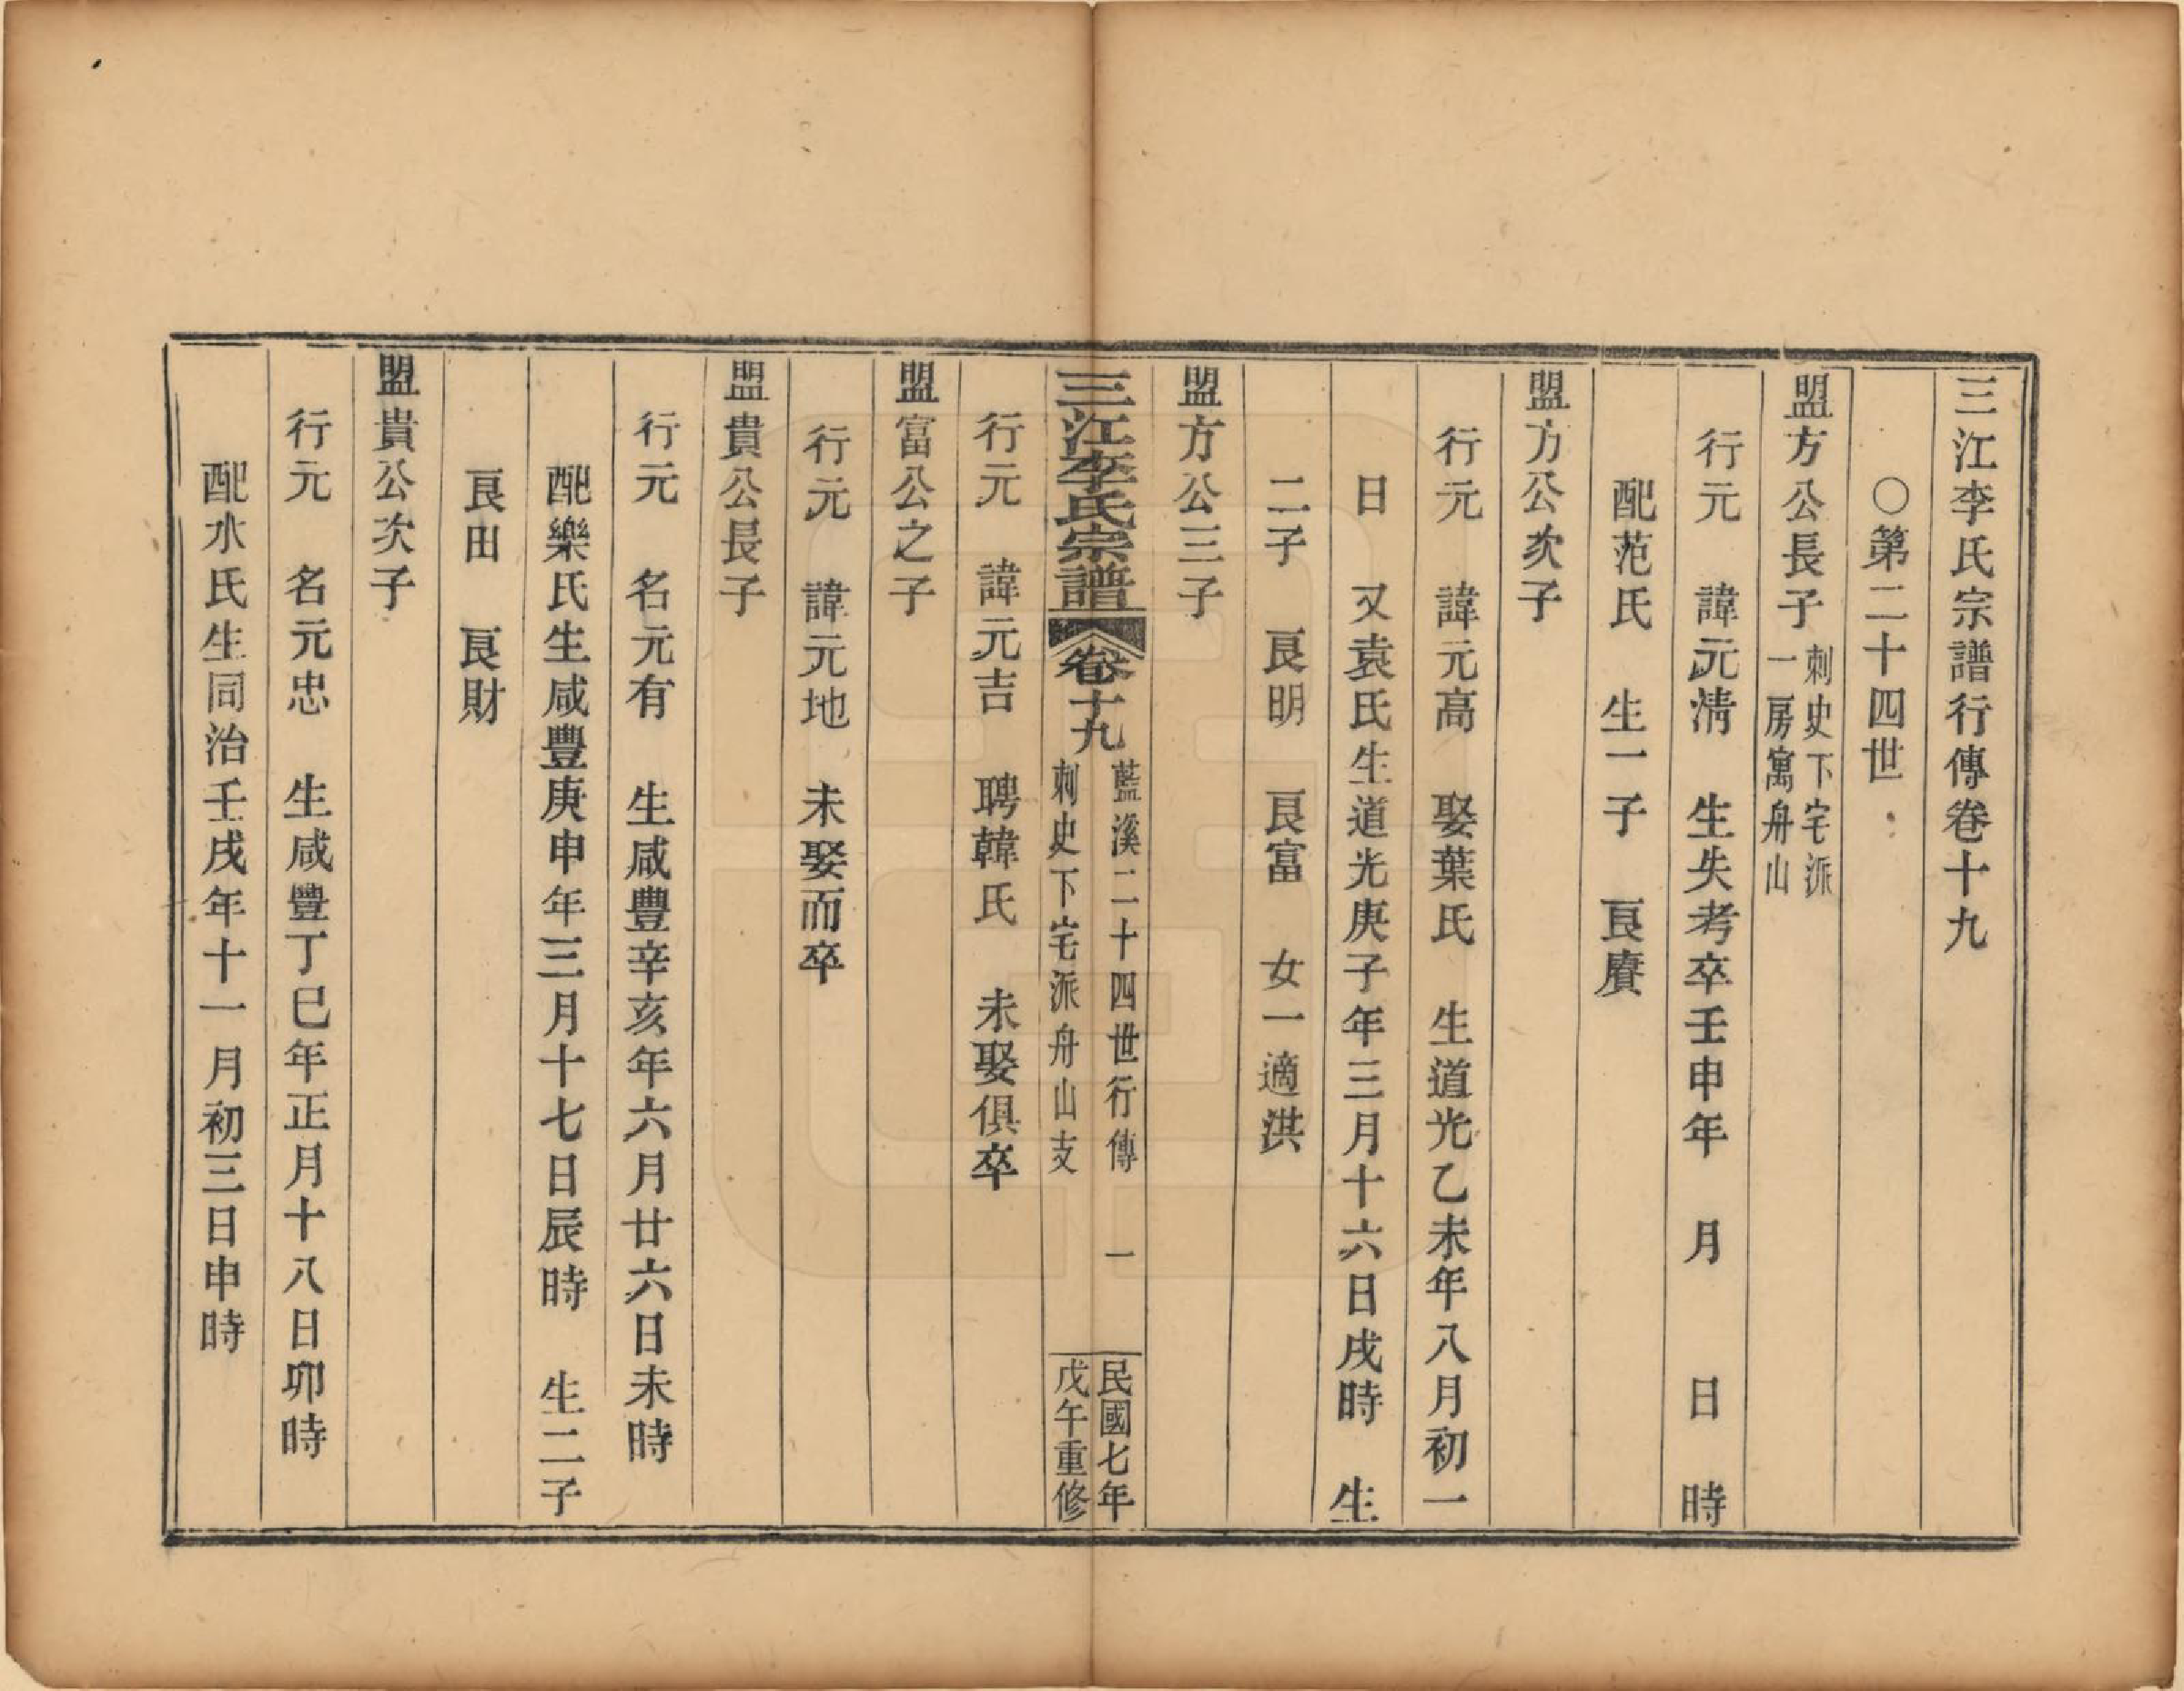 三江李氏宗譜行傳卷十九
○第二十四世
盟方公長子 刺史下宅派
一房寓舟山
行元 諱元淸 生失考卒壬申年 月 日 時
配范氏 生一子 良賡
盟方公次子
行元 諱元高 娶葉氏 生道光乙未年八月初一
日 又袁氏生道光庚子年三月十六日戌時 生
二子 良明 良富 女一適洪
盟方公三子
三江李氏宗譜 卷十九 藍溪二十四世行傳 一
刺史下宅派舟山支
民國七年
戊午重修
行元 諱元吉 聘韓氏 未娶俱卒
盟富公之子
行元 諱元地 未娶而卒
盟貴公長子
行元 名元有 生咸豐辛亥年六月廿六日未時
配樂氏生咸豐庚申年三月十七日辰時 生二子
良田 良財
盟貴公次子
行元 名元忠 生咸豐丁巳年正月十八日卯時
配水氏生同治壬戌年十一月初三日申時